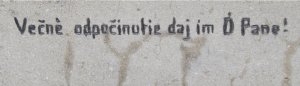 Večnè odpočinutie daj im Ó Pane!